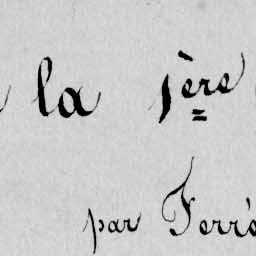 la 1ère
par Ferré